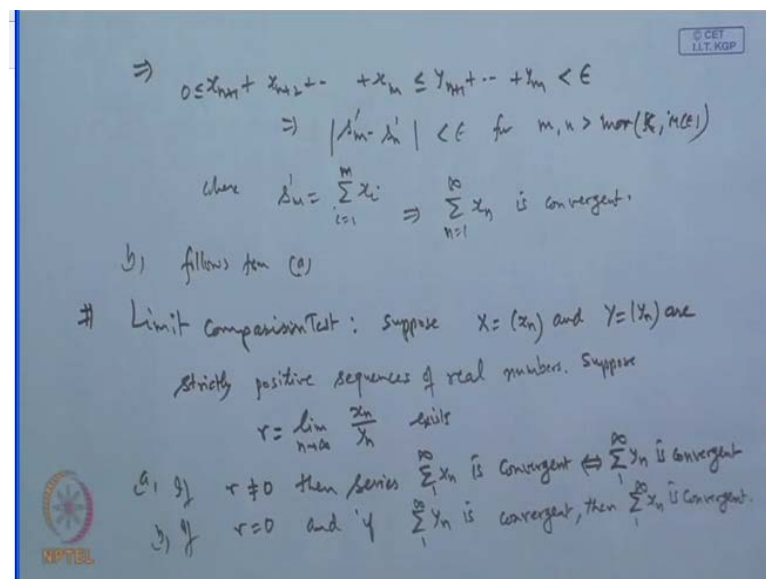 © CET
I.I.T. KGP
⇒ 0 ≤ x_{n+1} + x_{n+2} + -- + x_m ≤ y_{n+1} + -- + y_m < ϵ
⇒ |s'_m - s'_n| < ϵ for m, n > max(K, M(ϵ))
where s'_n = ∑_{i=1}^{m} x_i ⇒ ∑_{n=1}^{∞} x_n is convergent.
b) follows from (a)
# Limit Comparison Test : Suppose X = (x_n) and Y = (y_n) are
strictly positive sequences of real numbers. Suppose
r = lim_{n→∞} x_n/y_n exists
a, If r ≠ 0 then series ∑_1^∞ x_n is convergent ⇔ ∑_1^∞ y_n is convergent
b, If r = 0 and if ∑_1^∞ y_n is convergent, then ∑_1^∞ x_n is convergent.
NPTEL